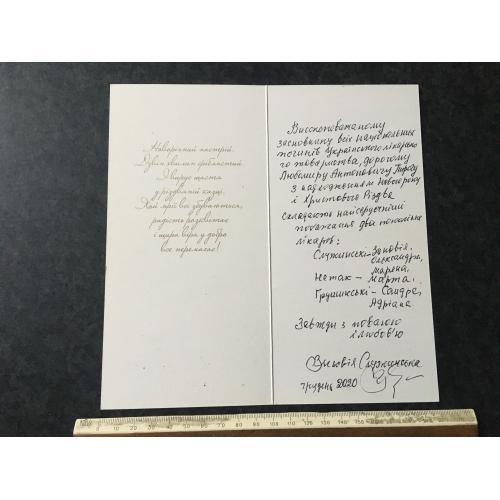 Новорічний настрій.
Дзвін хвилин срібластий.
І вирує щастя
у різдвяній казці.
Хай мрії всі здіснаються,
радість розквітає
і щира віра у добро
все перемагає!
Високоповажному
засновнику всіх національних
починів Українського лікарсько
го товариства, дорогому
Любомиру Антоновичу
з надходженням Нового року
і Христового Різдва
складають найсердечніші
побажання два покоління
лікарів:
Служинські - Зиновія,
Олександра,
Марена,
Нетак - Марта.
Грушинські - Сандра,
Адріана
Завжди з повагою
і любов'ю
Зиновія Служинська
грудень 2020
0 10 20 30 40 50 60 70 80 90 100 110 120 130 140 150